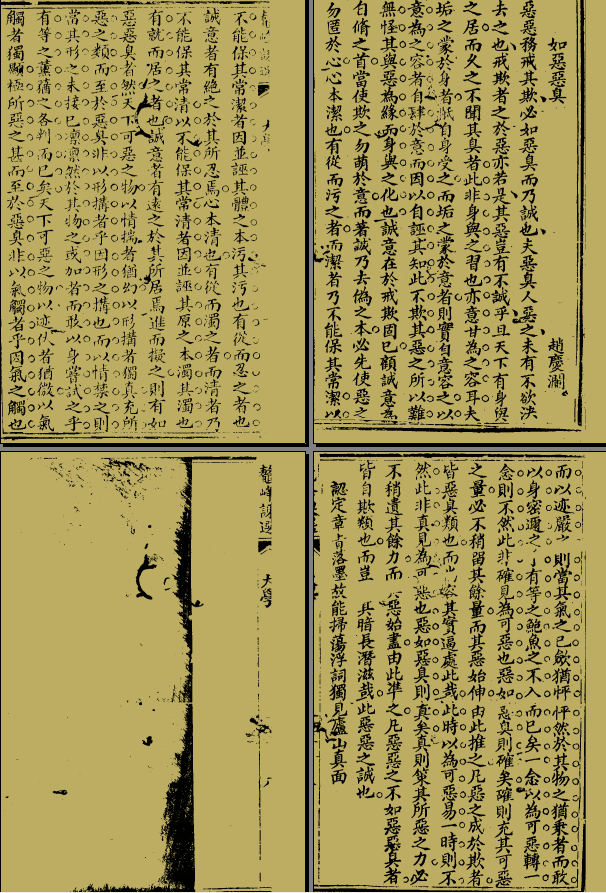 如惡惡臭
趙慶瀾
惡惡務戒其欺必如惡臭而乃誠也夫惡臭人惡之未有不欲決
去之也戒欺者之於惡亦若是其惡豈有不誠乎且天下有身與
之居而久之不聞其臭者此非身與之習也亦意甘為之容耳夫
垢之蒙於身者猶自身受之而垢之蒙於意者則實自意容之以
意為之容者自肆於意而因以自誣其知此不欺其惡之所以難
無怪其與惡為緣而身與之化也誠意在於戒欺固已顧誠意為
自脩之首當使欺之勿萌於意而著誠乃去偽之本必先使惡之
勿匿於心心本潔也有從而污之者而潔者乃不能保其常潔以
大學
不能保其常潔者因並誣其體之本污其污也有從而忍之者也
誠意者有絕之於其所忍焉心本清也有從而濁之者而清者乃
不能保其常清以不能保其常清者因並誣其原之本濁其濁也
有就而居之者也誠意者有遠之於其所居焉進而擬之則有如
惡惡臭者然天下可惡之物以情揣者猶幻以形搆者獨真充所
惡之類而至於惡臭非以形搆者乎因形之搆也而以情禁之則
當其形之未接已凜凜然於其物之或加者而敢以身嘗試之乎
有等之薰蕕之各判而已矣天下可惡之物以迹伏者猶微以氣
觸者獨顯極所惡之甚而至於惡臭非以氣觸者乎因氣之觸也
而以迹嚴之則當其氣之已斂猶怦怦然於其物之猶乘者而敢
以身密邇之乎有等之鮑魚之不入而已矣一念以為可惡轉一
念則不然此非確見為可惡也惡如惡臭則確矣確則充其可惡
之量必不稍留其餘量而其惡始伸由此推之凡惡之成於欺者
皆惡臭類也而豈容其實逼處此哉此時以為可惡易一時則不
然此非真見為可惡也惡如惡臭則真矣真則策其所惡之力必
不稍遺其餘力而其惡始盡由此準之凡惡惡之不如惡惡臭者
皆自欺類也而豈 其暗長潛滋哉此惡惡之誠也
認定章旨落墨故能掃蕩浮詞獨見廬山真面
鼇峰課選
大學
八